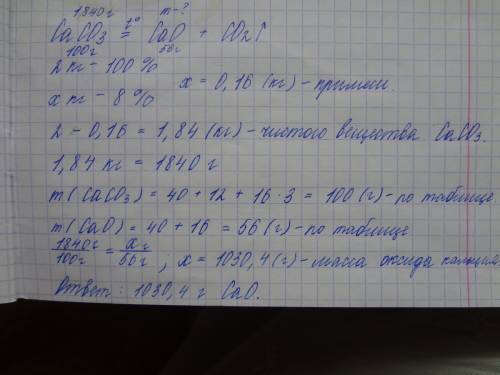 1840г m-?
CaCO3 t°= CaO + CO2↑
100г 56г
2 кг - 100%
x кг - 8%
x = 0,16 (кг) - примеси.
2 - 0,16 = 1,84 (кг) - чистого вещества CaCO3.
1,84 кг = 1840 г
m(CaCO3) = 40 + 12 + 16·3 = 100 (г) - по таблице.
m(CaO) = 40 + 16 = 56 (г) - по таблице
1840г/100г = xг/56г , x = 1030,4 (г) - масса оксида кальция.
Ответ: 1030,4 г CaO.